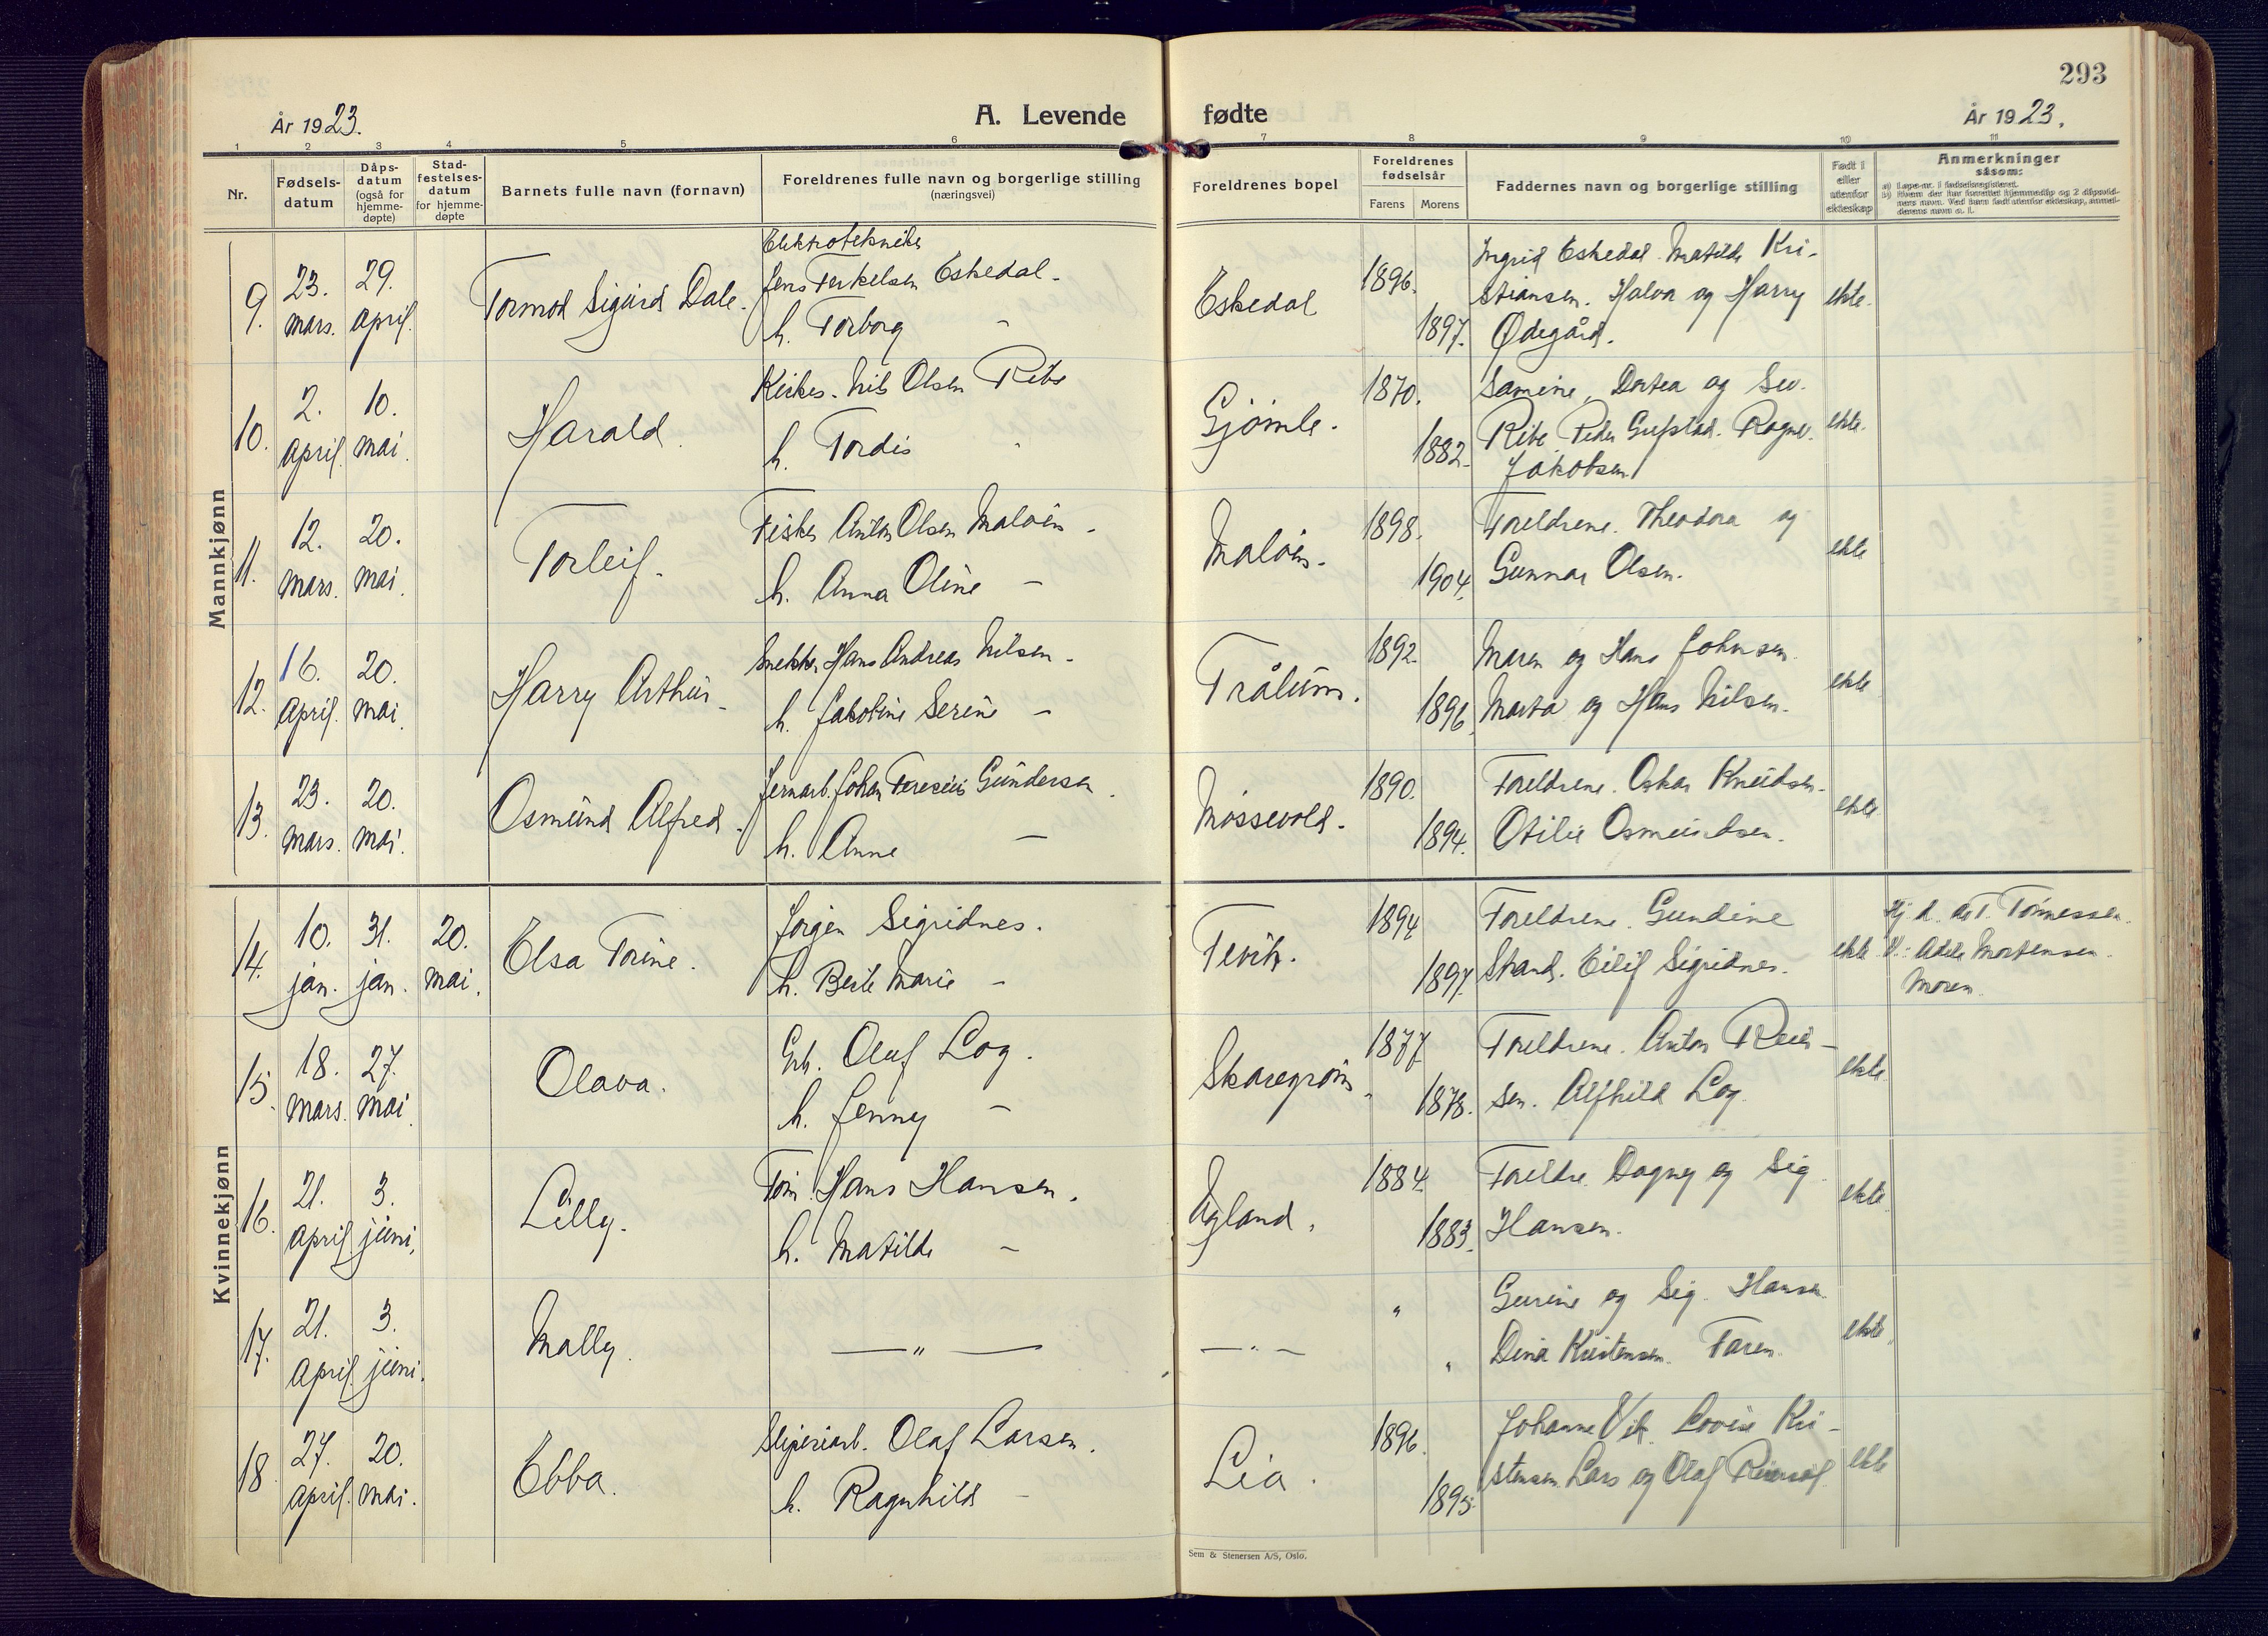 293
År 1923.
A. Levende fødte
År 1923.
1 2 3 4 5 6 7 8 9 10 11
Nr.
Fødsels-
datum
Dåps-
datum
(også for
hjemme-
døpte)
Stad-
festelses-
datum
for hjemme-
døpte
Barnets fulle navn (fornavn)
Foreldrenes fulle navn og borgerlige stilling
(næringsvei)
Foreldrenes bopel
Foreldrenes
fødselsår
Farens Morens
Faddernes navn og borgerlige stilling
Født i
eller
utenfor
ekteskap
Anmerkninger
såsom:
Mannkjønn
9. 23. mars. 29. april. Tormod Sigurd Dale.
Elektrotekniker
Jens Terkelsen Eskedal -
h. Torborg -
Eskedal 1896. 1897.
Ingrid Eskedal. Matilde Kri-
stiansen. Halvor og Harry
Ødegård.
ekte.
10. 2. april. 10. mai. Harald.
Kirkes. Nils Olsen Ribe
h. Tordis "
Gjømle. 1870. 1882.
Samine, Dortea og Sev.
Ribe. Peder Grefstad. Ragnv.
Jakobsen
ekte.
11. 12. mars. 20. mai. Torleif.
Fisker Anton Olsen Maløen.
h. Anna Oline -
Maløen. 1898. 1904.
Foreldrene. Theodora og
Gunnar Olsen.
ekte
12. 16. april. 20. mai. Harry Arthur.
Snekker Hans Andreas Nilsen.
h. Jakobine Serine -
Trålum. 1892. 1896.
Maren og Hans Johnsen.
Marta og Hans Nilsen.
ekte
13. 23. mars. 20. mai. Osmund Alfred.
Jernarb. Johan Teresius Gundersen.
h. Anne -
Møssevold. 1890. 1894.
Foreldrene. Oskar Knudsen.
Otilie Osmundsen.
ekte.
Kvinnekjønn
14. 10. jan. 31. jan. 20. mai. Elsa Torine.
Jørgen Sigridnes.
h. Berte Marie -
Tevik. 1894 1897.
Foreldrene. Gundine
Strand. Eilif Sigridnes.
ekte
Hj. d. av T. Tønnessen.
V: Adele Mortensen.
Moren.
15. 18. mars. 27. mai. Olava.
Grb. Olaf Log.
h. Jenny -
Skaregrøm. 1877 1878.
Foreldrene. Anton Reier-
sen. Alfhild Log.
ekte.
16. 21. april. 3. juni. Lilly.
Tøm. Hans Hansen.
h. Matilde -
Ugland. 1884. 1883.
Foreldre. Dagny og Sig.
Hansen.
ekte.
17. 21. april. 3. juni. Mally. — " — — " — " "
Gurine og Sig. Hansen
Dina Kristensen. Faren.
ekte.
18. 27. april. 20. mai. Ebba.
Sliperiarb. Olaf Larsen.
h. Ragnhild -
Lia. 1896. 1895.
Johanne Vik. Lovise Kri-
stensen. Lars og Olaf
ekte
Sem & Stenersen A/S, Oslo.